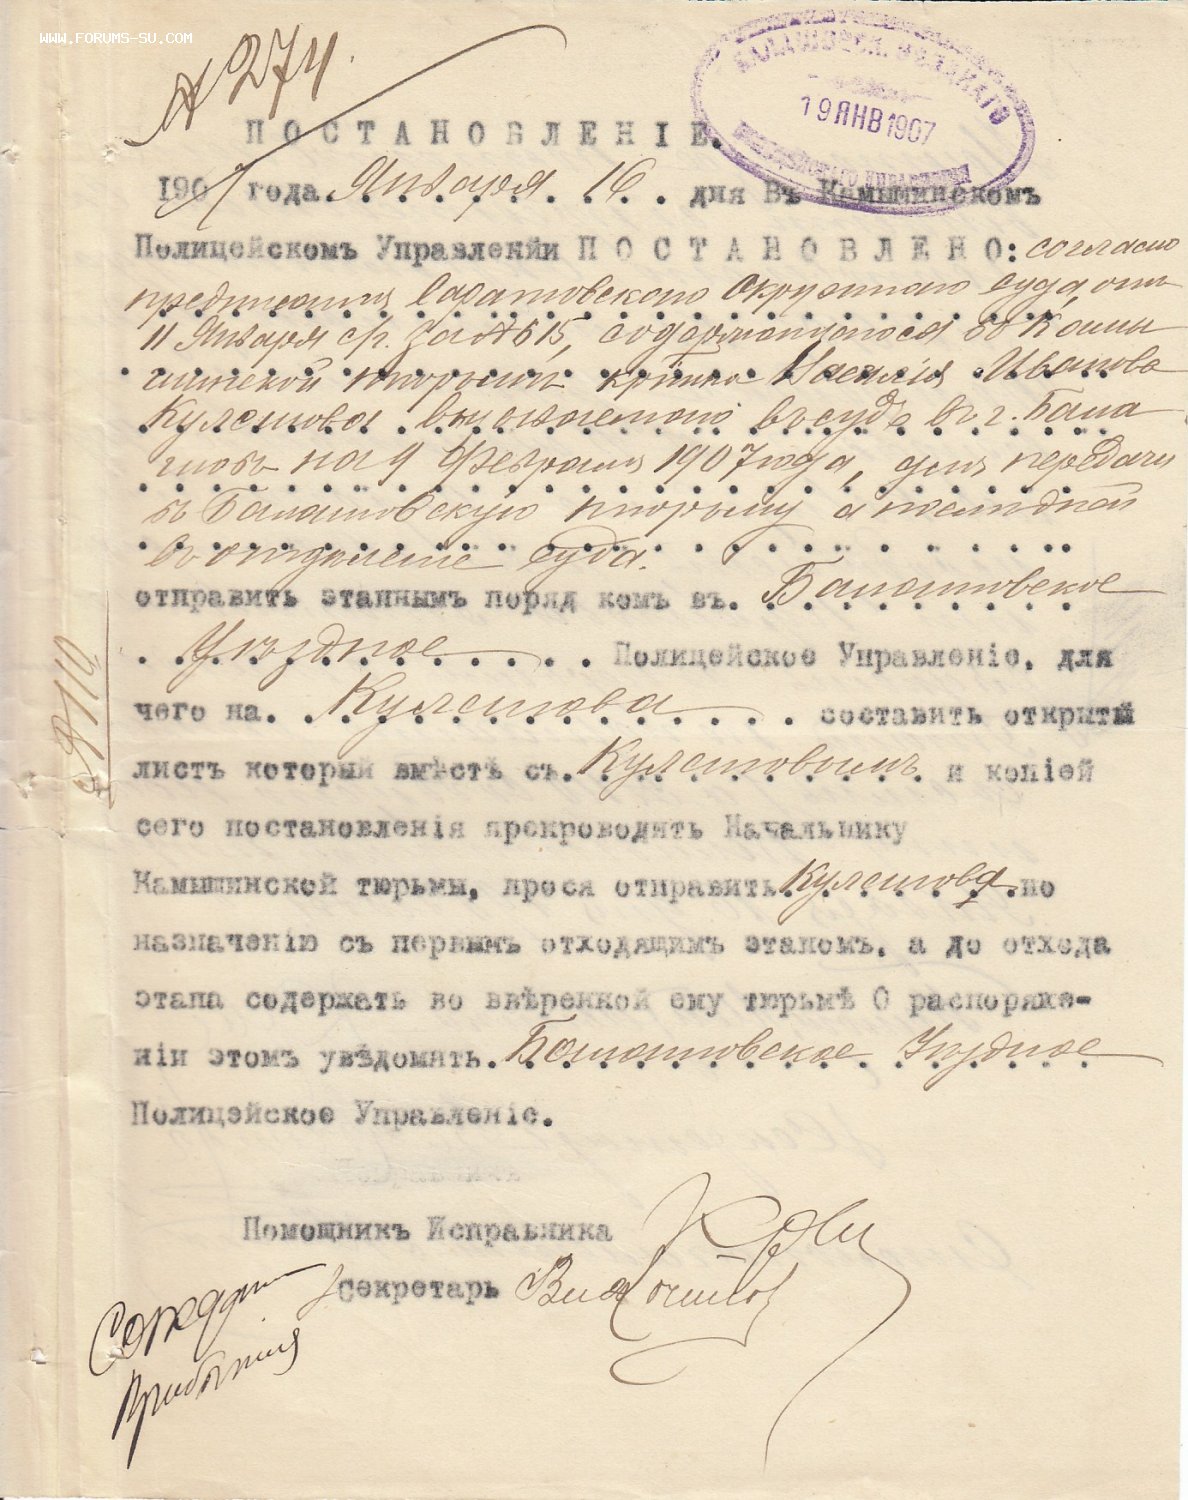 WWW.FORUMS-SU.COM
№ 274.
БАЛАШОВСК. УѢЗДНАГО
19 ЯНВ 1907
ПОЛИЦЕЙСКАГО УПРАВЛЕНІЯ
ПОСТАНОВЛЕНІЕ.
1907 года Января 16 дня Въ Камышинскомъ
Полицейскомъ Управленйи ПОСТАНОВЛЕНО: согласно
предписанія Саратовскаго Окружнаго Суда, отъ
11 Января с/г. за № 515, содержащагося въ Камы
шинской тюрьмѣ кр-нина Василія Иванова
Кулешова вызываемаго въ судъ въ г. Бала
шовъ на 9 Февраля 1907 года, для передачи
въ Балашовскую тюрьму а последней
въ отдѣленіе суда.
отправить этапнымъ поряд комъ въ Балашовское
Уѣздное Полицейское Управленіе, для
чего на Кулешова составить открытый
листъ который вмѣстѣ съ Кулешовымъ и копіей
сего постановленія препроводить Начальнику
Камышинской тюрьмы, прося отправить Кулешова по
назначенію съ первымъ отходящимъ этапомъ, а до отхода
этапа содержать во ввѣренной ему тюрьмѣ О распоряже-
ніи этомъ увѣдомить Балашовское Уѣздное
Полицейское Управленіе.
Помощникъ Исправника
Секретарь
прибытія